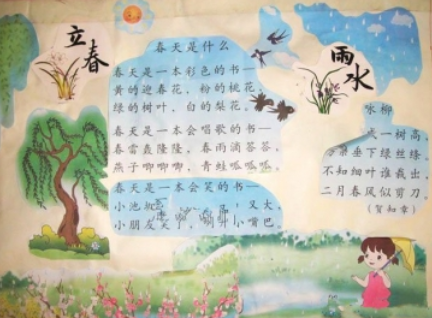 立春
春天是什么
春天是一本彩色的书—
黄的迎春花，粉的桃花，
绿的树叶，白的梨花。
春天是一本会唱歌的书—
春雷轰隆隆，春雨滴答答，
燕子唧唧唧，青蛙呱呱呱。
春天是一本会笑的书—
小池 又大
小朋友笑了， 小嘴巴。
雨水
咏柳
一树高，
下绿丝绦，
不知细叶谁裁出，
二月春风似剪刀。
(贺知章)